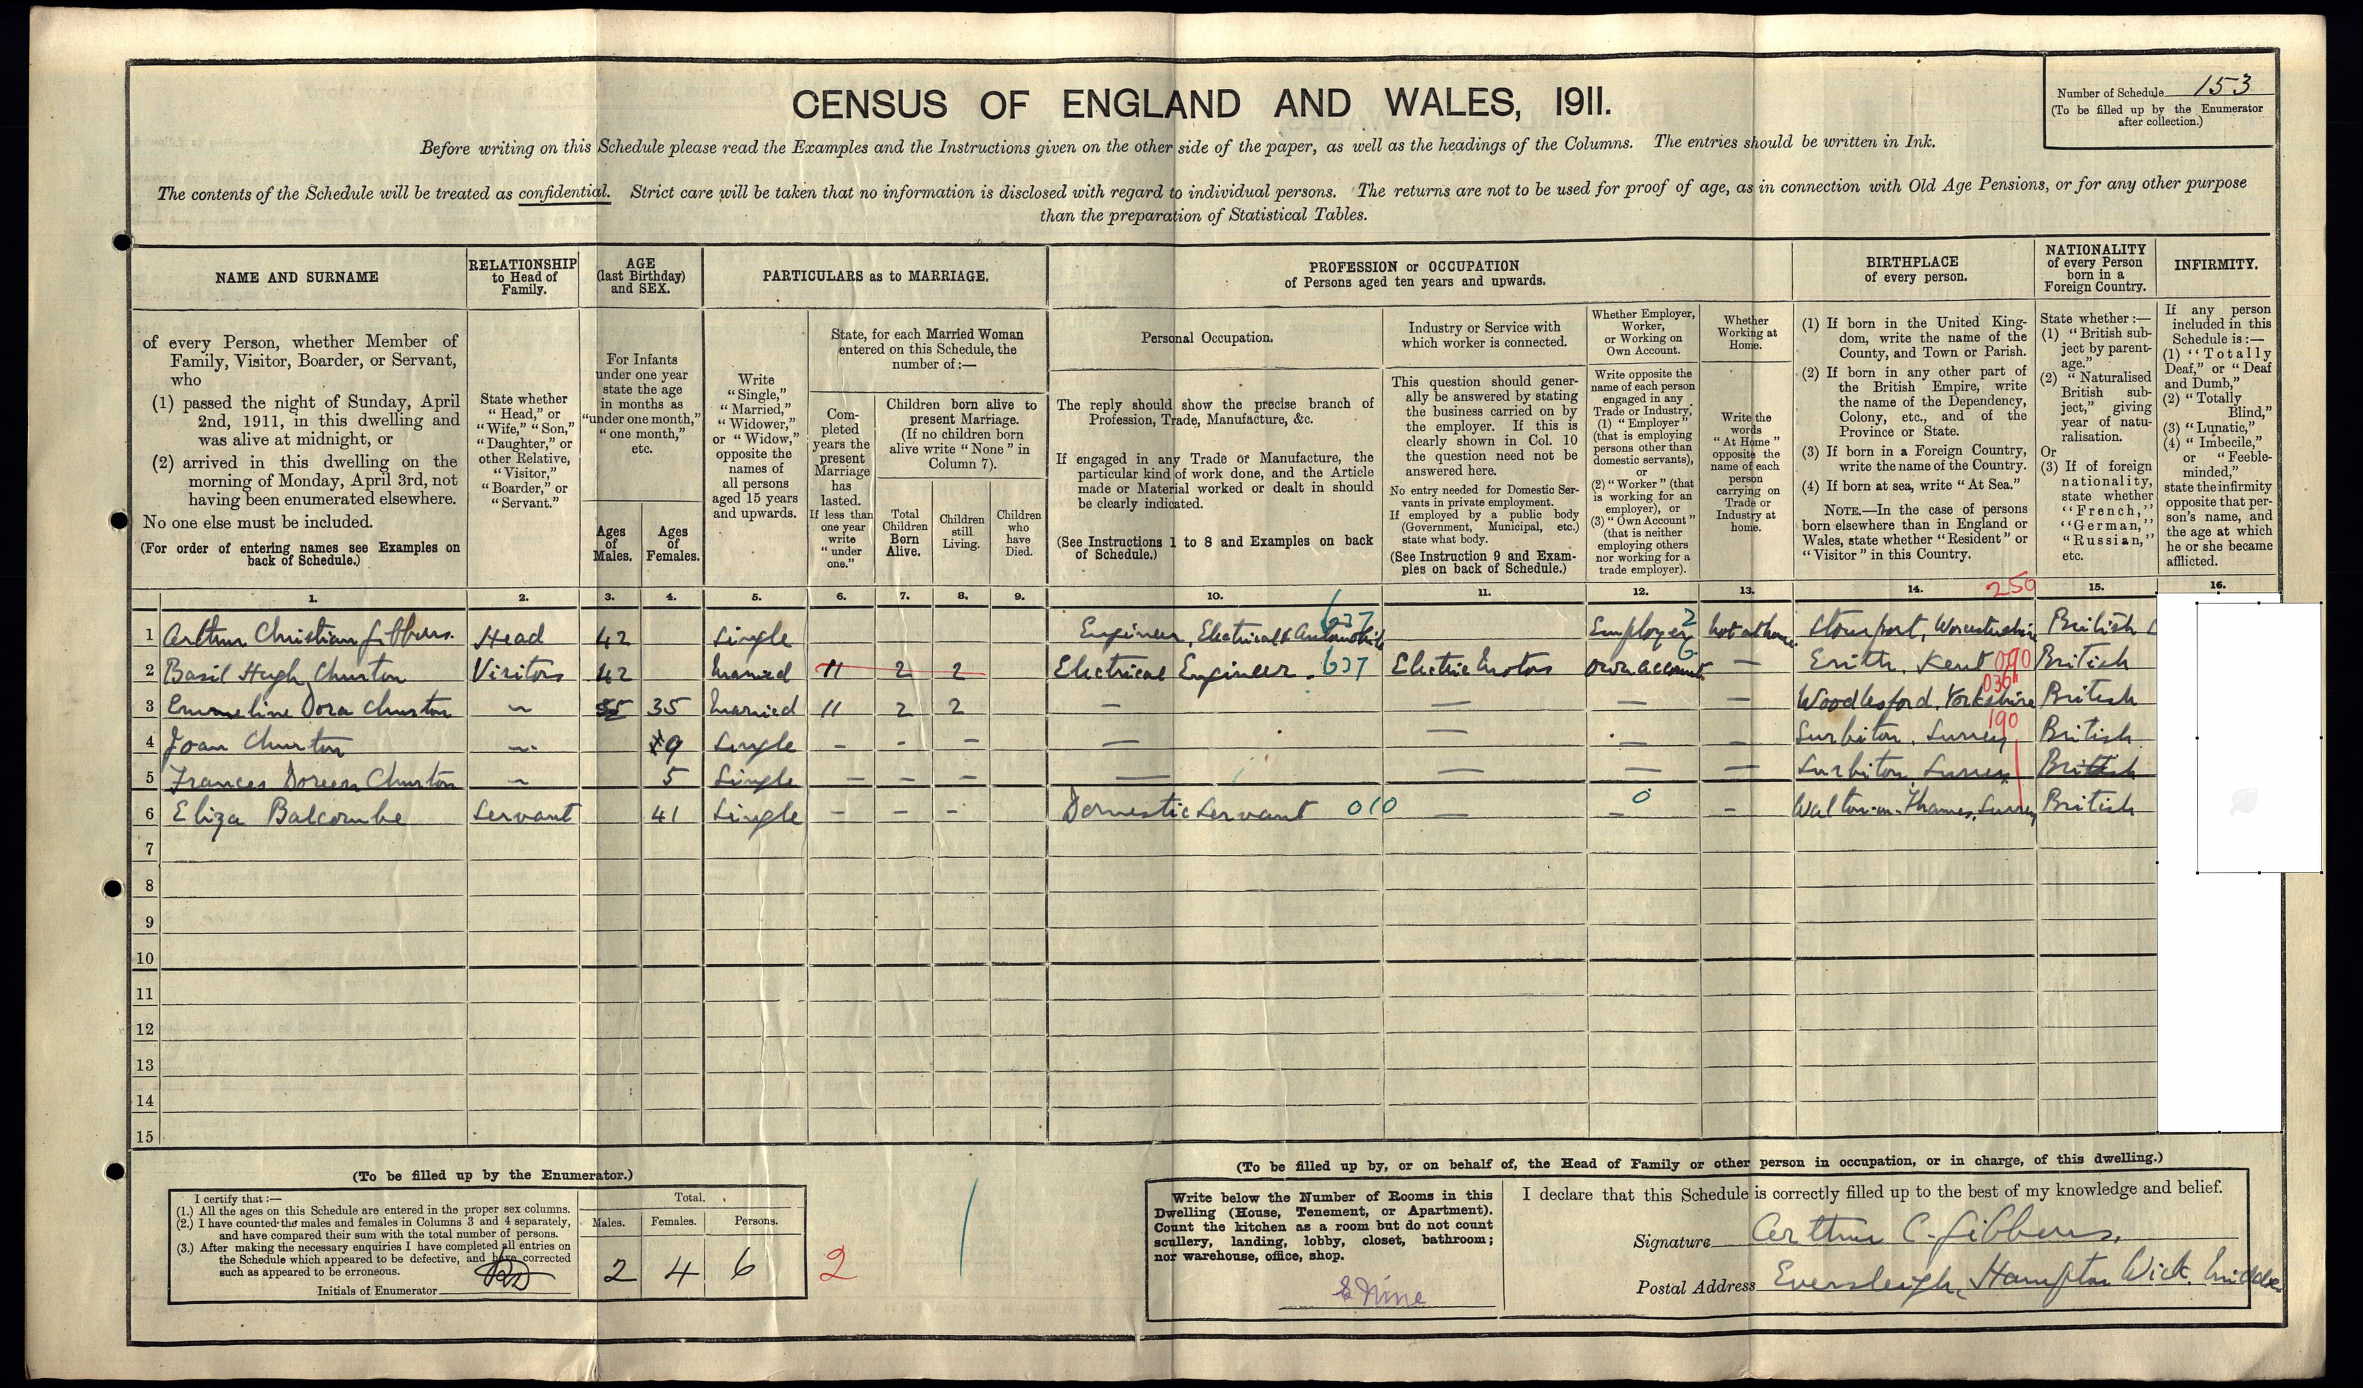 CENSUS OF ENGLAND AND WALES, 1911.
Number of Schedule 153
(To be filled up by the Enumerator
after collection.)
Before writing on this Schedule please read the Examples and the Instructions given on the other side of the paper, as well as the headings of the Columns. The entries should be written in Ink.
The contents of the Schedule will be treated as confidential. Strict care will be taken that no information is disclosed with regard to individual persons. The returns are not to be used for proof of age, as in connection with Old Age Pensions, or for any other purpose
than the preparation of Statistical Tables.
NAME AND SURNAME
of every Person, whether Member of
Family, Visitor, Boarder, or Servant,
who
(1) passed the night of Sunday, April
2nd, 1911, in this dwelling and
was alive at midnight, or
(2) arrived in this dwelling on the
morning of Monday, April 3rd, not
having been enumerated elsewhere.
No one else must be included.
(For order of entering names see Examples on
back of Schedule.)
RELATIONSHIP
to Head of
Family.
State whether
"Head," or
"Wife," "Son,"
"Daughter," or
other Relative,
"Visitor,"
"Boarder," or
"Servant."
AGE
(last Birthday)
and SEX.
For Infants
under one year
state the age
in months as
"under one month,"
"one month,"
etc.
Ages
of
Males.
Ages
of
Females.
PARTICULARS as to MARRIAGE.
Write
"Single,"
"Married,"
"Widower,"
or "Widow,"
opposite the
names of
all persons
aged 15 years
and upwards.
State, for each Married Woman
entered on this Schedule, the
number of :—
Com-
pleted
years the
present
Marriage
has
lasted.
If less than
one year
write
"under
one."
Children born alive to
present Marriage.
(If no children born
alive write "None" in
Column 7).
Total
Children
Born
Alive.
Children
still
Living.
Children
who
have
Died.
PROFESSION or OCCUPATION
of Persons aged ten years and upwards.
Personal Occupation.
The reply should show the precise branch of
Profession, Trade, Manufacture, &c.
If engaged in any Trade or Manufacture, the
particular kind of work done, and the Article
made or Material worked or dealt in should
be clearly indicated.
(See Instructions 1 to 8 and Examples on back
of Schedule.)
Industry or Service with
which worker is connected.
This question should gener-
ally be answered by stating
the business carried on by
the employer. If this is
clearly shown in Col. 10
the question need not be
answered here.
No entry needed for Domestic Ser-
vants in private employment.
If employed by a public body
(Government, Municipal, etc.)
state what body.
(See Instruction 9 and Exam-
ples on back of Schedule.)
Whether Employer,
Worker,
or Working on
Own Account.
Write opposite the
name of each person
engaged in any
Trade or Industry,
(1) "Employer"
(that is employing
persons other than
domestic servants),
or
(2) "Worker" (that
is working for an
employer), or
(3) "Own Account"
(that is neither
employing others
nor working for a
trade employer).
Whether
Working at
Home.
Write the
words
"At Home"
opposite the
name of each
person
carrying on
Trade or
Industry at
home.
BIRTHPLACE
of every person.
(1) If born in the United King-
dom, write the name of the
County, and Town or Parish.
(2) If born in any other part of
the British Empire, write
the name of the Dependency,
Colony, etc., and of the
Province or State.
(3) If born in a Foreign Country,
write the name of the Country.
(4) If born at sea, write "At Sea."
NOTE.—In the case of persons
born elsewhere than in England or
Wales, state whether "Resident" or
"Visitor" in this Country.
NATIONALITY
of every Person
born in a
Foreign Country.
State whether :—
(1) "British sub-
ject by parent-
age."
(2) "Naturalised
British sub-
ject," giving
year of natu-
ralisation.
Or
(3) If of foreign
nationality,
state whether
"French,"
"German,"
"Russian,"
etc.
INFIRMITY.
If any person
included in this
Schedule is :—
(1) "Totally
Deaf," or "Deaf
and Dumb,"
(2) "Totally
Blind,"
(3) "Lunatic,"
(4) "Imbecile,"
or "Feeble-
minded,"
state the infirmity
opposite that per-
son's name, and
the age at which
he or she became
afflicted.
1. 2. 3. 4. 5. 6. 7. 8. 9. 10. 11. 12. 13. 14. 250 15. 16.
1 Arthur Christian Gibbons. Head 42 Single Engineer, Electrical & Automobile 637 Employer 2 Not at home Stourport, Worcestershire British
2 Basil Hugh Churton Visitors 42 Married 11 2 2 Electrical Engineer. 637 Electric Motors Own account 6 — Erith, Kent 090 British
3 Emmeline Dora Churton 35 Married 11 2 2 — — — — Woodlesford, Yorkshire 036 British
4 Joan Churton 9 Single – – – — — — — Surbiton, Surrey 190 British
5 Frances Doreen Churton 5 Single – – – — — — — Surbiton, Surrey British
6 Eliza Balcombe Servant 41 Single – – – Domestic Servant 010 — 0 – – Walton-on-Thames, Surrey British
7
8
9
10
11
12
13
14
15
(To be filled up by the Enumerator.)
I certify that :—
(1.) All the ages on this Schedule are entered in the proper sex columns.
(2.) I have counted the males and females in Columns 3 and 4 separately,
and have compared their sum with the total number of persons.
(3.) After making the necessary enquiries I have completed all entries on
the Schedule which appeared to be defective, and have corrected
such as appeared to be erroneous.
Initials of Enumerator
Total.
Males. Females. Persons.
2 4 6
2
(To be filled up by, or on behalf of, the Head of Family or other person in occupation, or in charge, of this dwelling.)
Write below the Number of Rooms in this
Dwelling (House, Tenement, or Apartment).
Count the kitchen as a room but do not count
scullery, landing, lobby, closet, bathroom;
nor warehouse, office, shop.
Nine
I declare that this Schedule is correctly filled up to the best of my knowledge and belief.
Signature Arthur C. Gibbons.
Postal Address Eversleigh, Hampton Wick, Middx